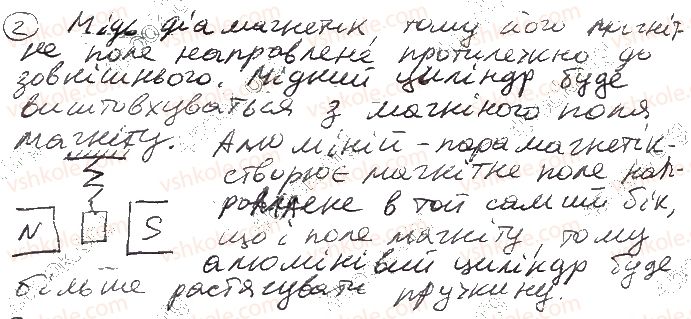 2 Мідь діамагнетік, тому його магніт-
не поле направлене протилежно до
зовнішнього. Мідний циліндр буде
виштовхуваться з магніного поля
магніту.
Алюміній - парамагнетік -
створює магнітне поле нап-
равлене в той самий бік,
N S що і поле магніту, тому
алюмінівий циліндр буде
більше растягувать пружину.